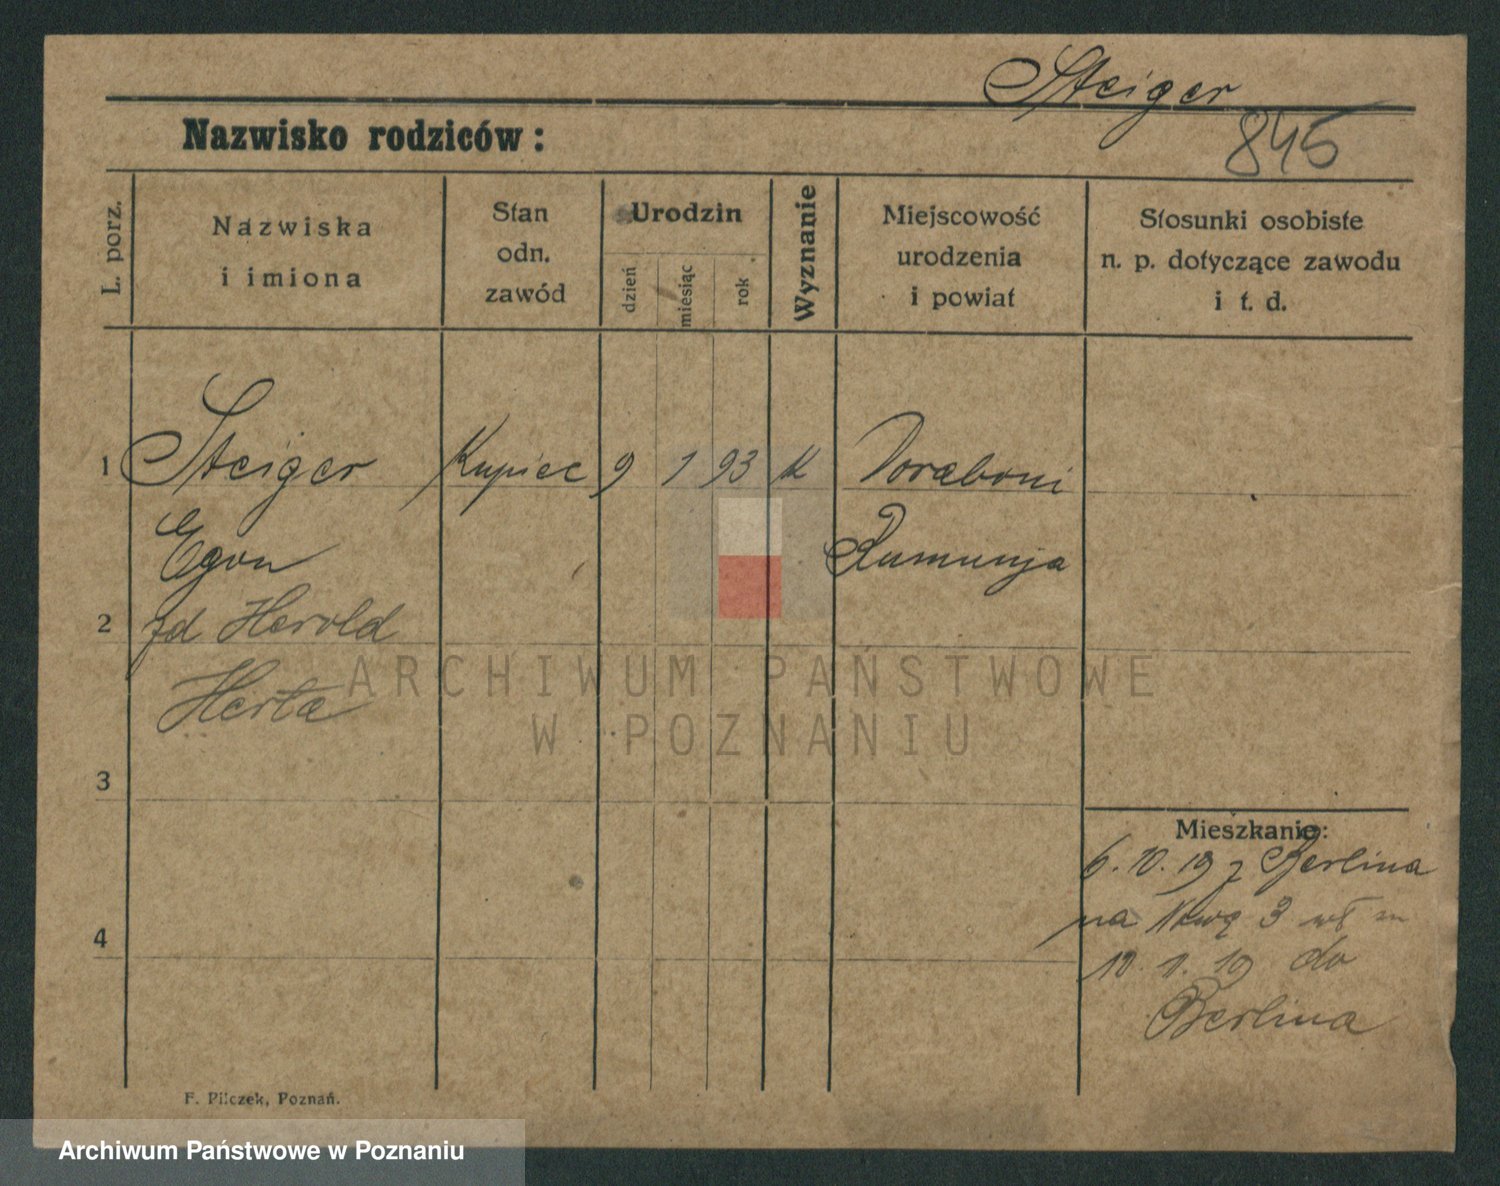 Steiger
845
Nazwisko rodziców:
L. porz.
Nazwiska
i imiona
Stan
odn.
zawód
Urodzin
dzień
miesiąc
rok
Wyznanie
Miejscowość
urodzenia
i powiat
Stosunki osobiste
n. p. dotyczące zawodu
i t. d.
1 Steiger Kupiec 9 1 93 k Doraboni
Egon Rumunja
2 zd Herold
Herta
ARCHIWUM PAŃSTWOWE
W POZNANIU
3
Mieszkanie:
6. 10. 19 z Berlina
na 3
4
19 do
Berlina
F. Pilczek, Poznań.
Archiwum Państwowe w Poznaniu